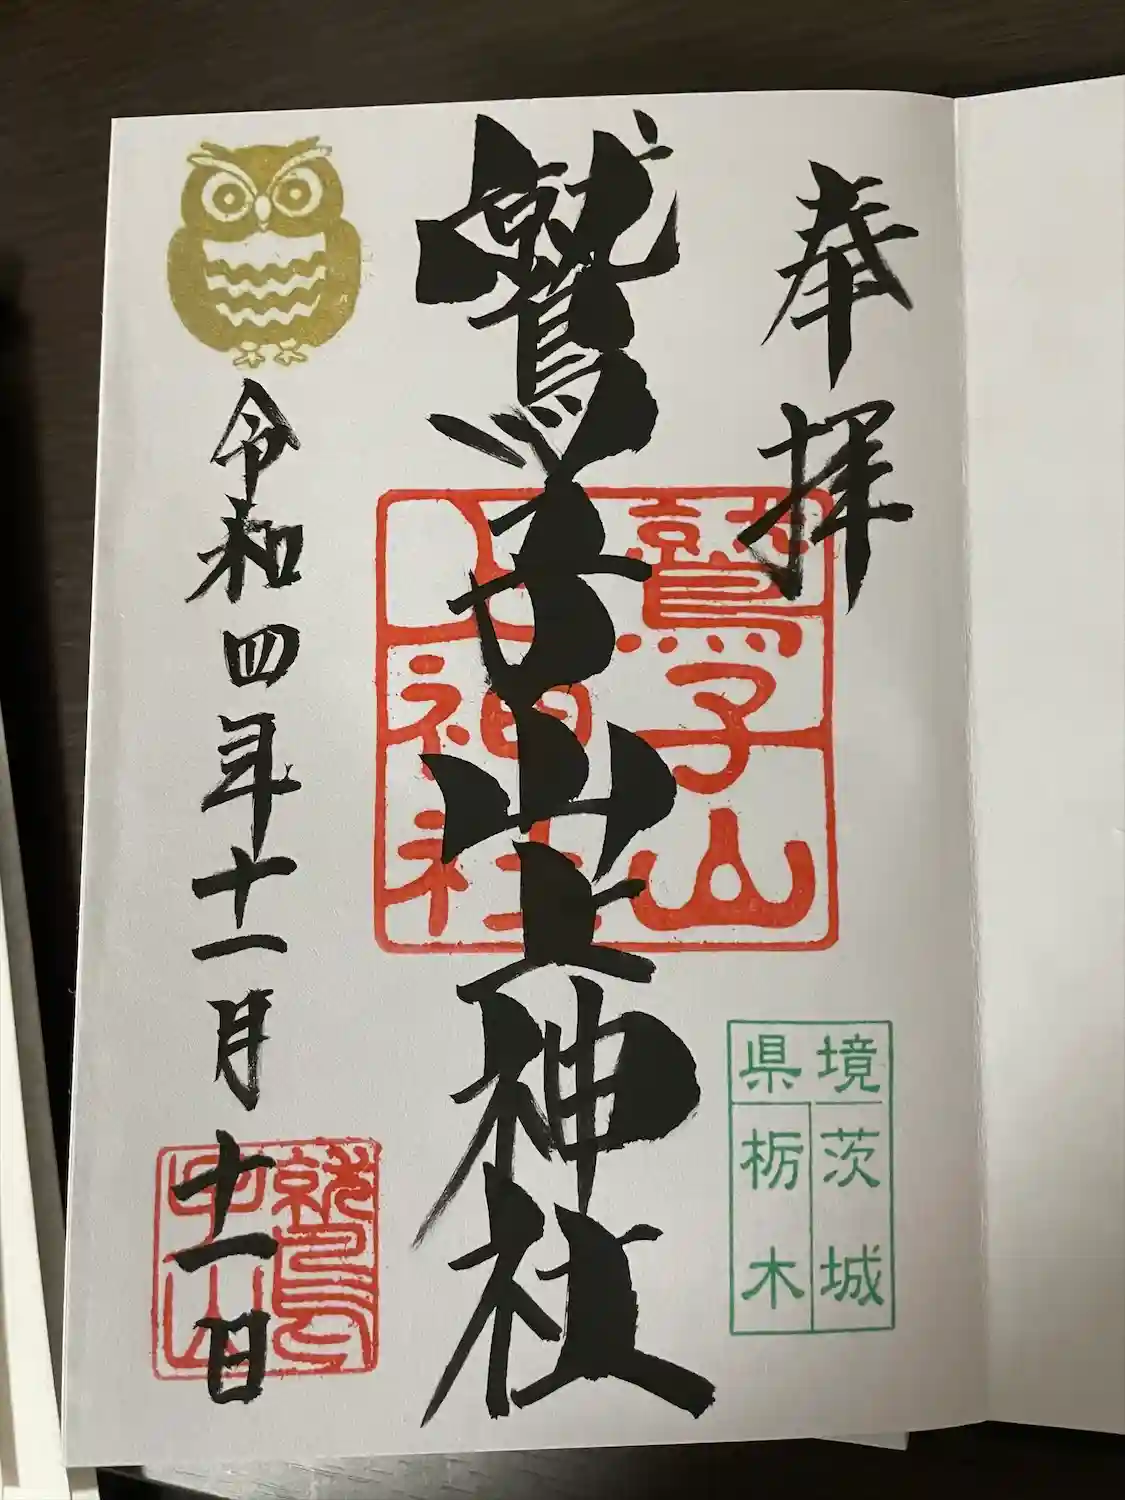 奉拝
鷲子山上神社
鷲子山
上神社
県境
茨城
栃木
令和四年十一月十一日
鷲子山